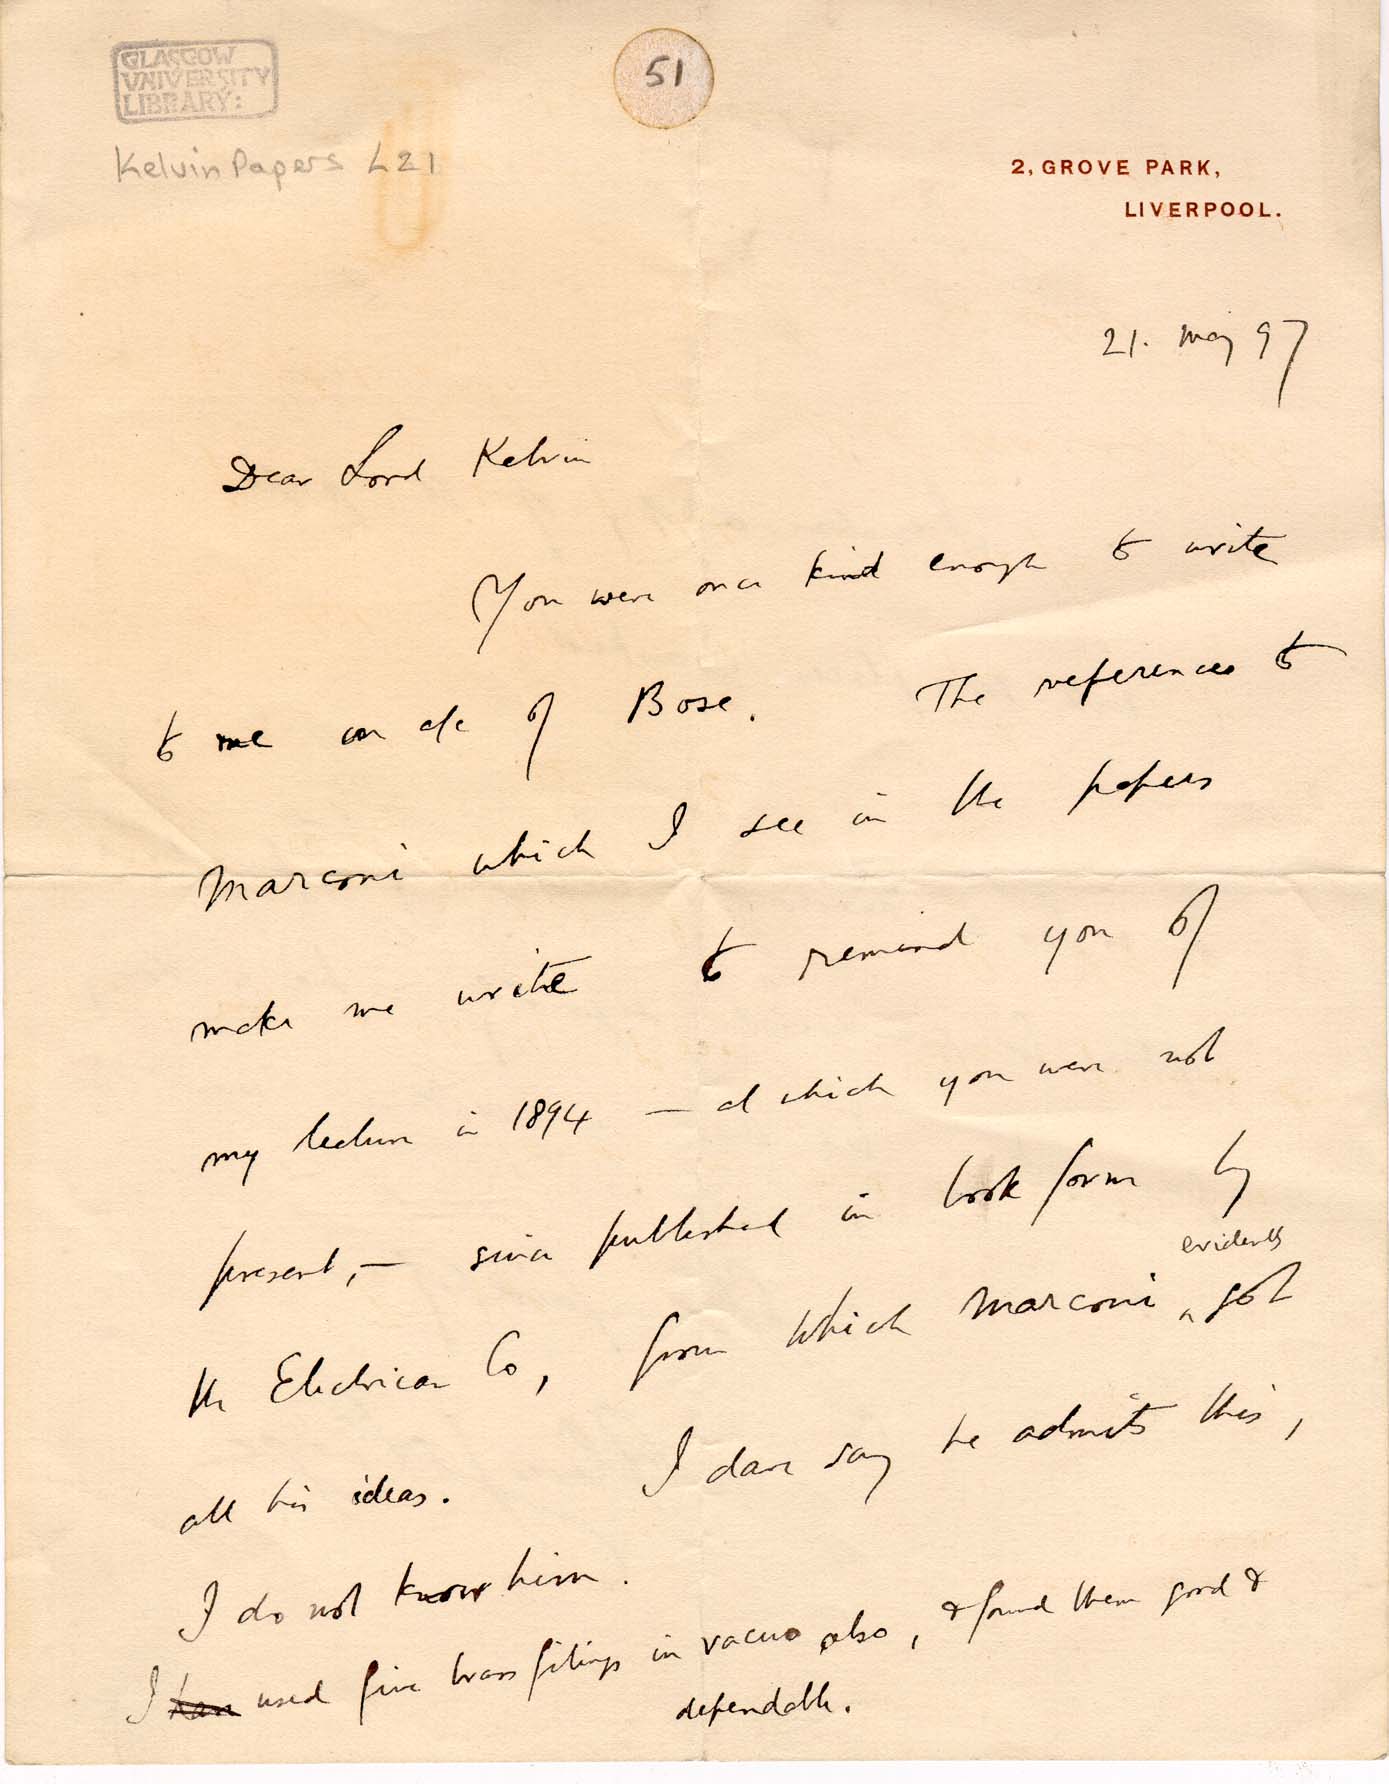 GLASGOW
UNIVERSITY
LIBRARY:
51
Kelvin Papers L21
2, GROVE PARK,
LIVERPOOL.
21. May 97
Dear Lord Kelvin
You were once kind enough to write
to me on a/c of Bose. The references to
Marconi which I see in the papers
make me write to remind you of
my lecture in 1894 — at which you were not
present, — since published in book form by
the Electrician Co, from which Marconi ^ got
evidently
all his ideas. I dare say he admits this,
I do not know him.
I have used fine brass filings in vacuo also, & found them good &
dependable.